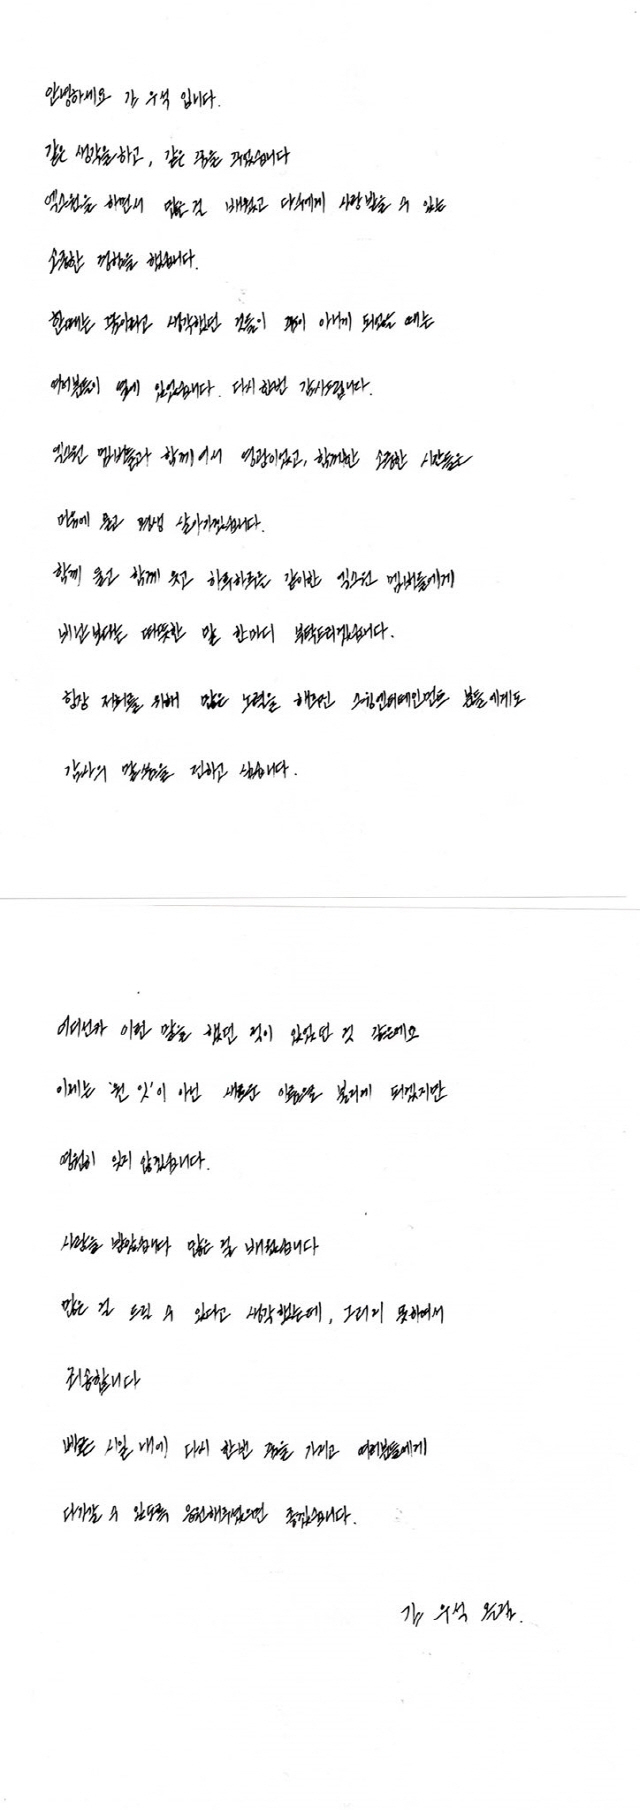 안녕하세요 김 우석 입니다.
같은 생각을하고, 같은 꿈을 꾸었습니다
엑스원을 하면서 많은걸 배웠고 다수에게 사랑 받을 수 있는
소중한 경험을 했습니다.
한때는 꿈이라고 생각했던 것들이 꿈이 아니게 되었을 때는
여러분들이 옆에 있었습니다. 다시한번 감사드립니다.
엑스원 멤버들과 함께여서 영광이었고, 함께한 소중한 시간들은
마음에 품고 평생 살아가겠습니다.
함께 울고 함께 웃고 하루하루를 같이한 엑스원 멤버들에게
비난보다는 따뜻한 말 한마디 부탁드리겠습니다.
항상 저희를 위해 많은 노력을 해주신 스윙엔터테인먼트 분들에게도
감사의 말씀을 전하고 싶습니다.
어디선가 이런 말을 했던 적이 있었던 것 같은데요
이제는 '원 잇'이 아닌 새로운 이름으로 불리게 되겠지만
영원히 잊지 않겠습니다.
사랑을 받았습니다 많은 걸 배웠습니다
많은 걸 드릴 수 있다고 생각했는데, 그러지 못하여서
죄송합니다
빠른 시일 내에 다시 한번 꿈을 가지고 여러분들에게
다가갈 수 있도록 응원해주셨으면 좋겠습니다.
김 우석 올림.